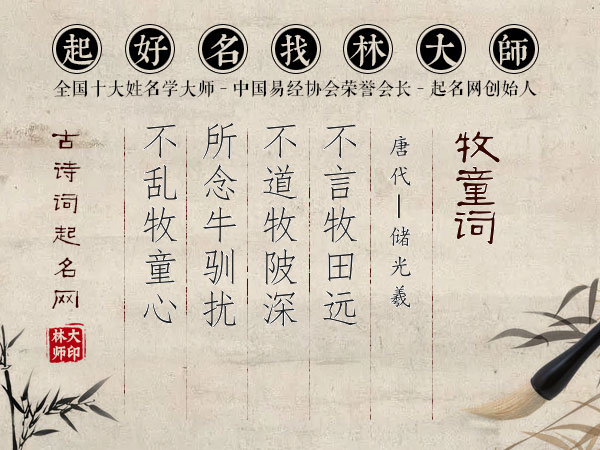 起好名找林大師
全国十大姓名学大师-中国易经协会荣誉会长-起名网创始人
牧童词
唐代—储光羲
不言牧田远
不道牧陂深
所念牛驯扰
不乱牧童心
古诗词起名网
林师大印